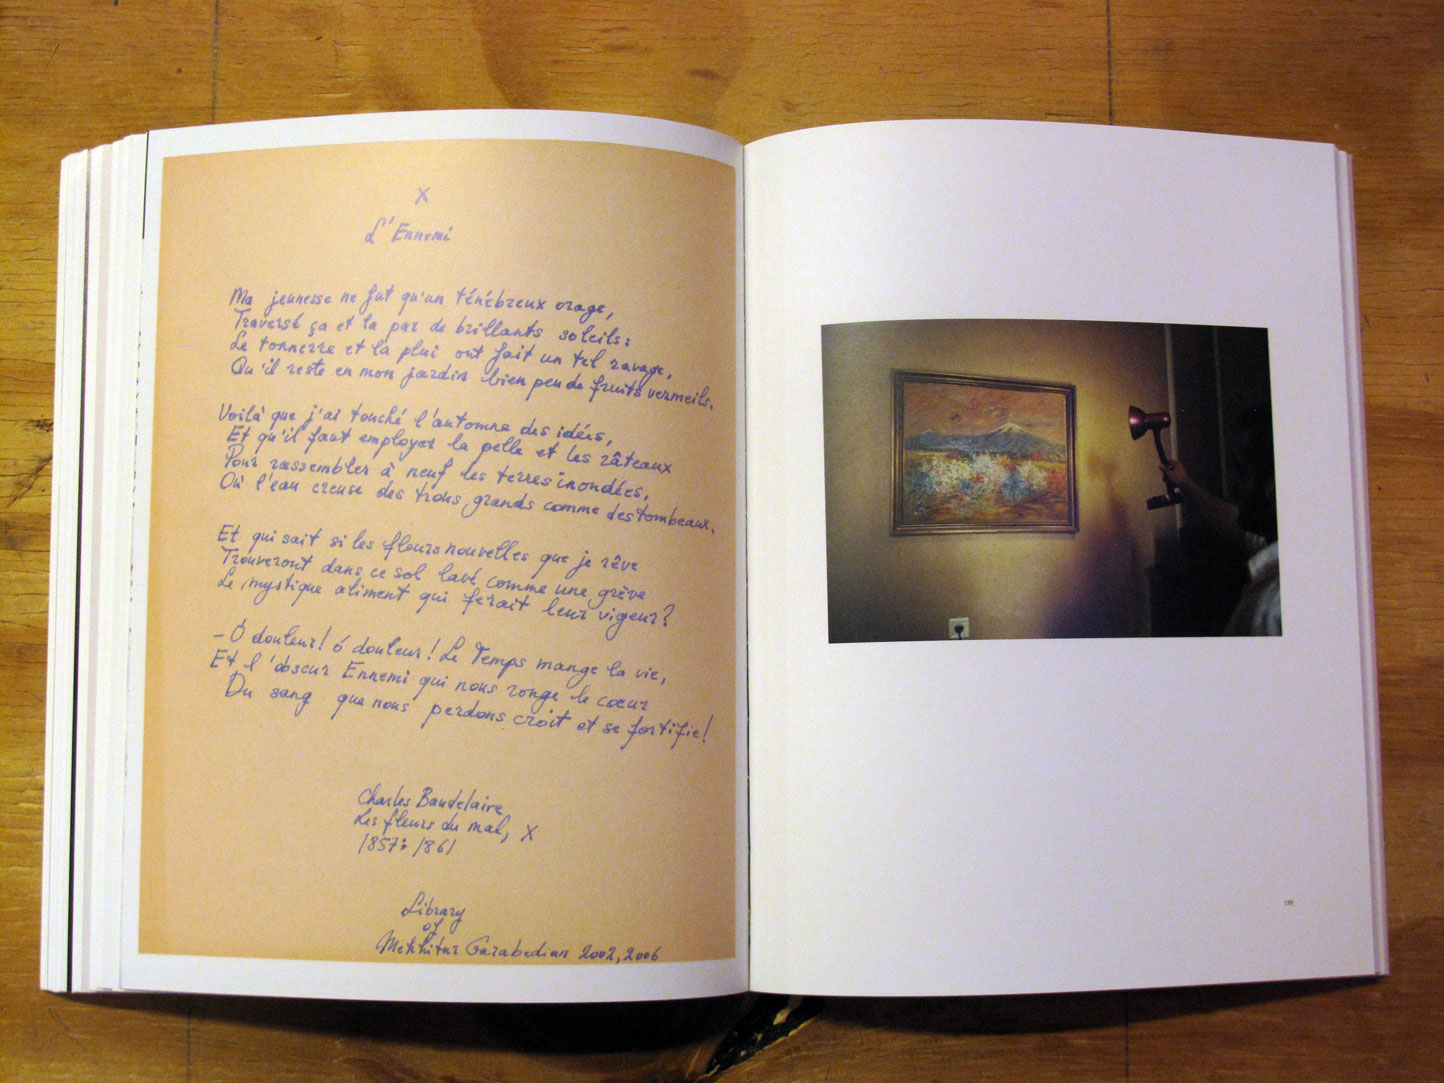 X
L'Ennemi
Ma jeunesse ne fut qu'un ténébreux orage,
Traversé ça et la par de brillants soleils:
Le tonnerre et la plui ont fait un tel ravage,
Qu'il reste en mon jardin bien peu de fruits vermeils.
Voilà que j'ai touché l'automne des idées,
Et qu'il faut employer la pelle et les râteaux
Pour rassembler à neuf les terres inondées,
Où l'eau creuse des trous grands comme des tombeaux.
Et qui sait si les fleurs nouvelles que je rêve
Trouveront dans ce sol lavé comme une grève
Le mystique aliment qui ferait leur vigeur?
- Ó douleur! ó douleur! Le Temps mange la vie,
Et l'obscur Ennemi qui nous ronge le cœur
Du sang que nous perdons croit et se fortifie!
Charles Baudelaire
Les fleurs du mal, X
1857; 1861
Library
of
Mekhitar Garabedian 2002, 2006